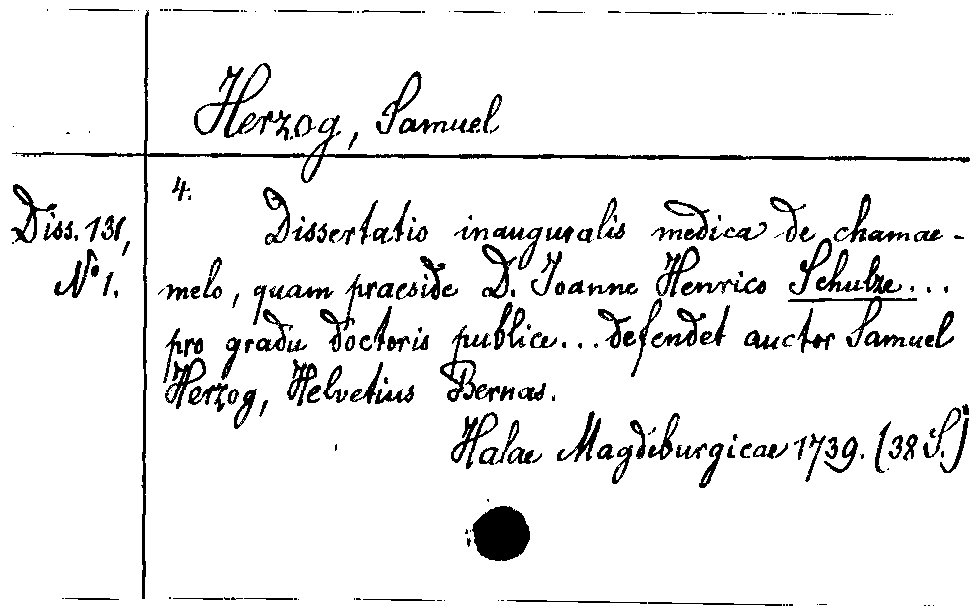 Herzog, Samuel
4.
Diss. 131,
No 1.
Dissertatio inauguralis medica de chamae-
melo, quam praeside D. Joanne Henrico Schulze...
pro gradu doctoris publice... defendet auctor Samuel
Herzog, Helvetius Bernas.
Halae Magdeburgicae 1739. (38 S.)